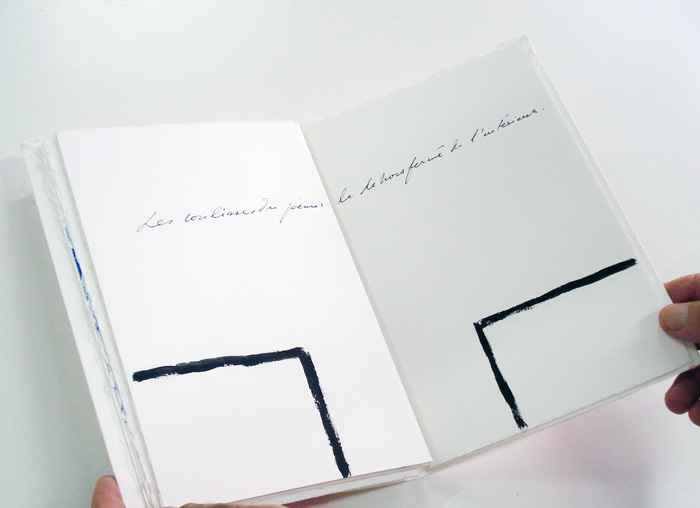 Les coulisses du
le dehors fermé de l'intérieur.